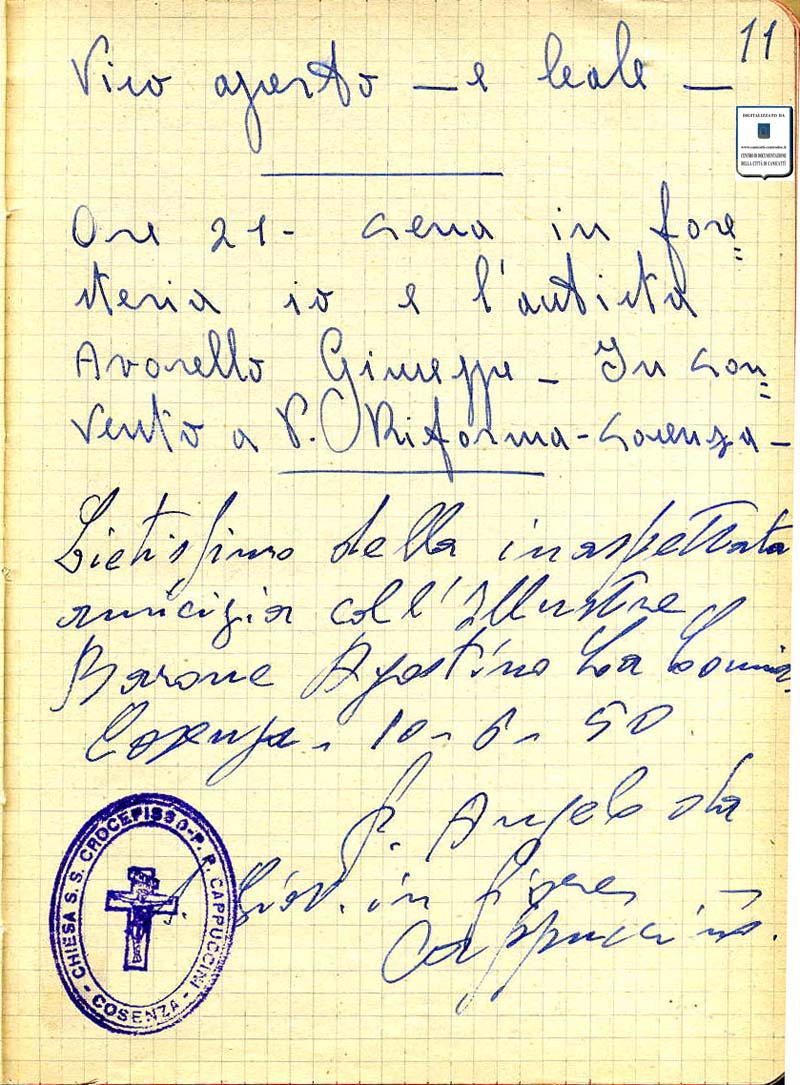 11
Vivo aperto — e leale —
DIGITALIZZATO DA
www.canicatti-centrodoc.it
CENTRO DI DOCUMENTAZIONE
DELLA CITTÀ DI CANICATTÌ
Ore 21 - Cena in fore=
steria io e l'autista
Avarello Giuseppe - In con=
vento a P. Riforma - Cosenza -
Lietissimo della inaspettata
amicizia coll'Illustre
Barone Agostino La Lomia
Cosenza - 10 - 6 - 50
P. Angelo da
S. Giov. in Fiore -
Cappuccino.
CHIESA S. S. CROCEFISSO - P. P. CAPPUCCINI
- COSENZA -